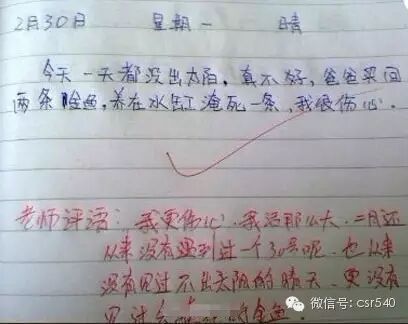 2月30日 星期一 晴
今天一天都没出太阳,真不好,爸爸买回
两条金鱼,养在水缸淹死一条,我很伤心.
老师评语:我更伤心.我活那么大,二月还
从来没有遇到过一个30号呢.也从来
没有见过不出太阳的晴天.更没有
见过会 的金鱼.
微信号: csr540